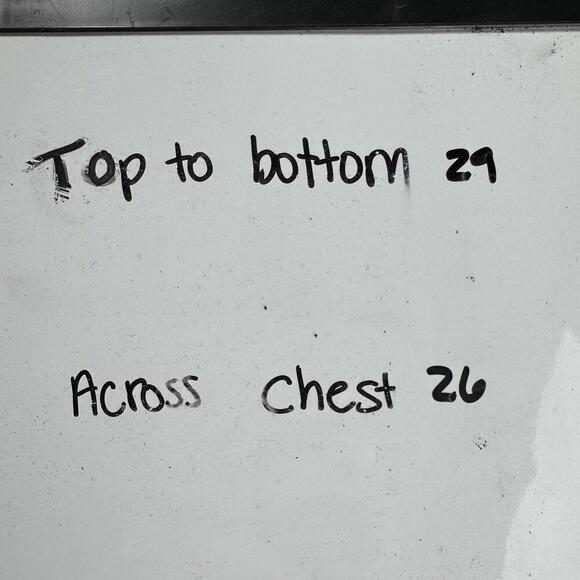 Top to bottom 29
Across Chest 26